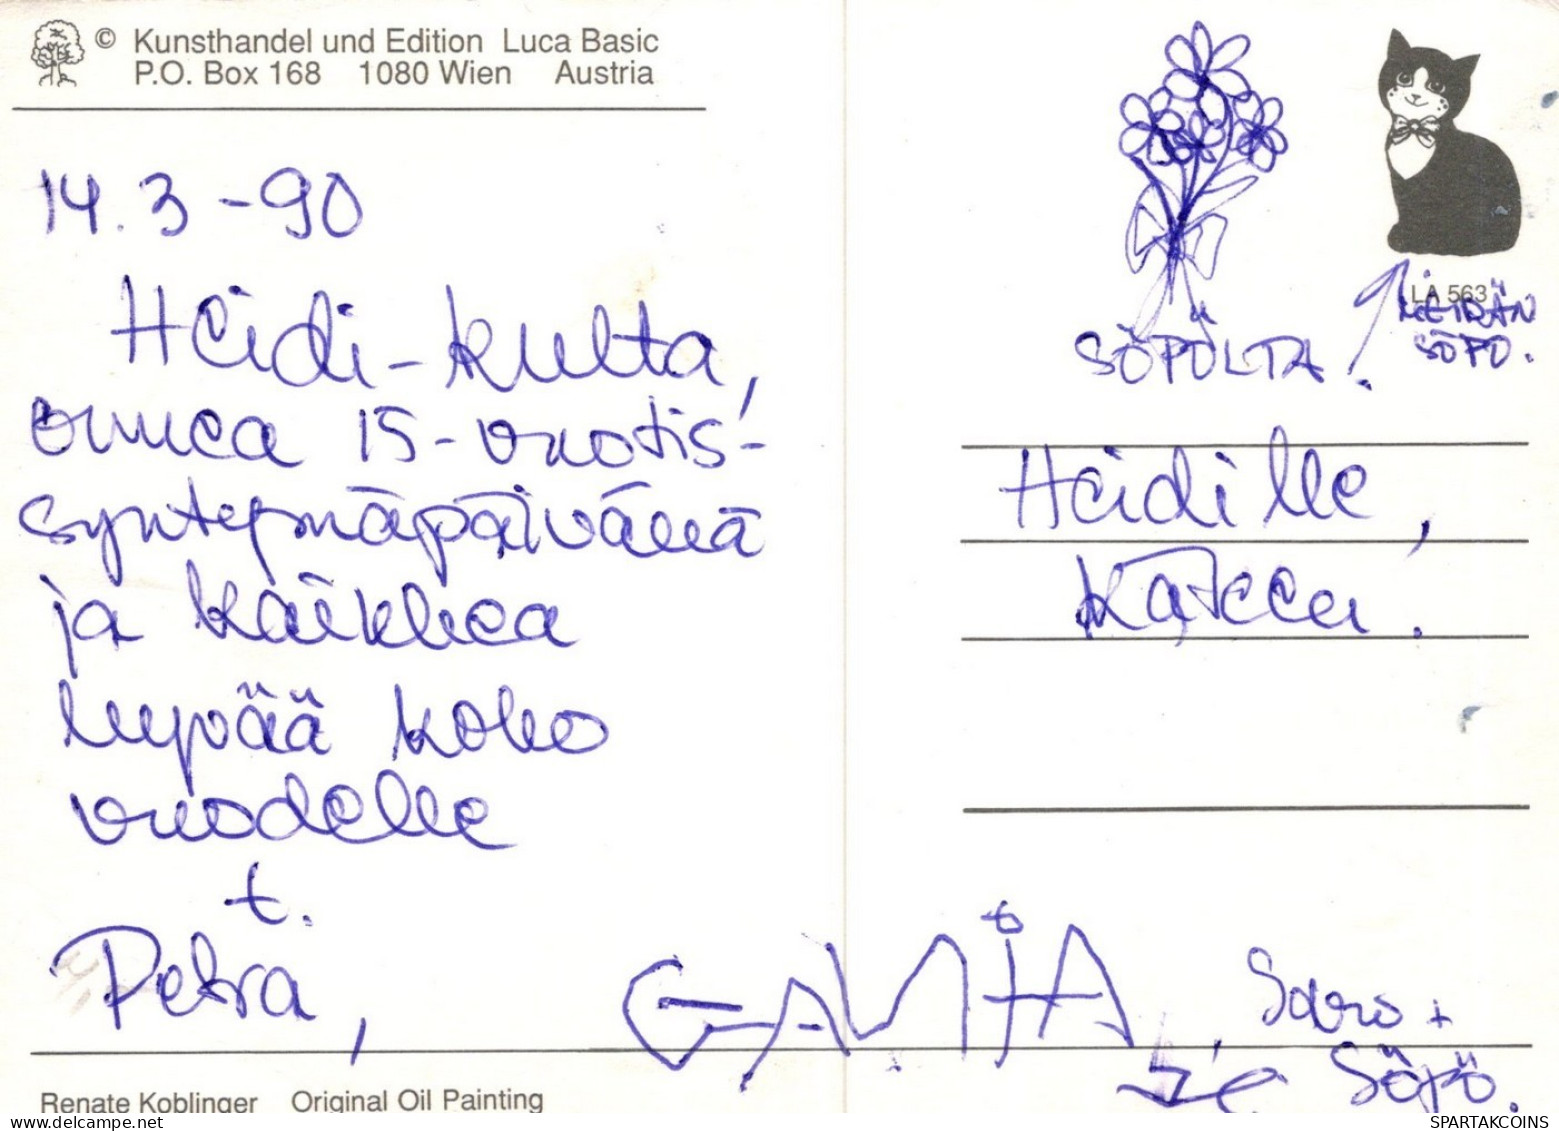 © Kunsthandel und Edition Luca Basic
P.O. Box 168 1080 Wien Austria
14.3 -90
Heidi-kulta,
onnea 15-vuotis-
syntymäpäivänä
ja kaikkea
hyvää koko
vuodelle
t.
Petra,
Saro +
Söpö.
LA 563
MEIDÄN
SÖPÖ.
SÖPÖLTÄ!
Heidille,
Renate Koblinger Original Oil Painting
SPARTAKCOINS